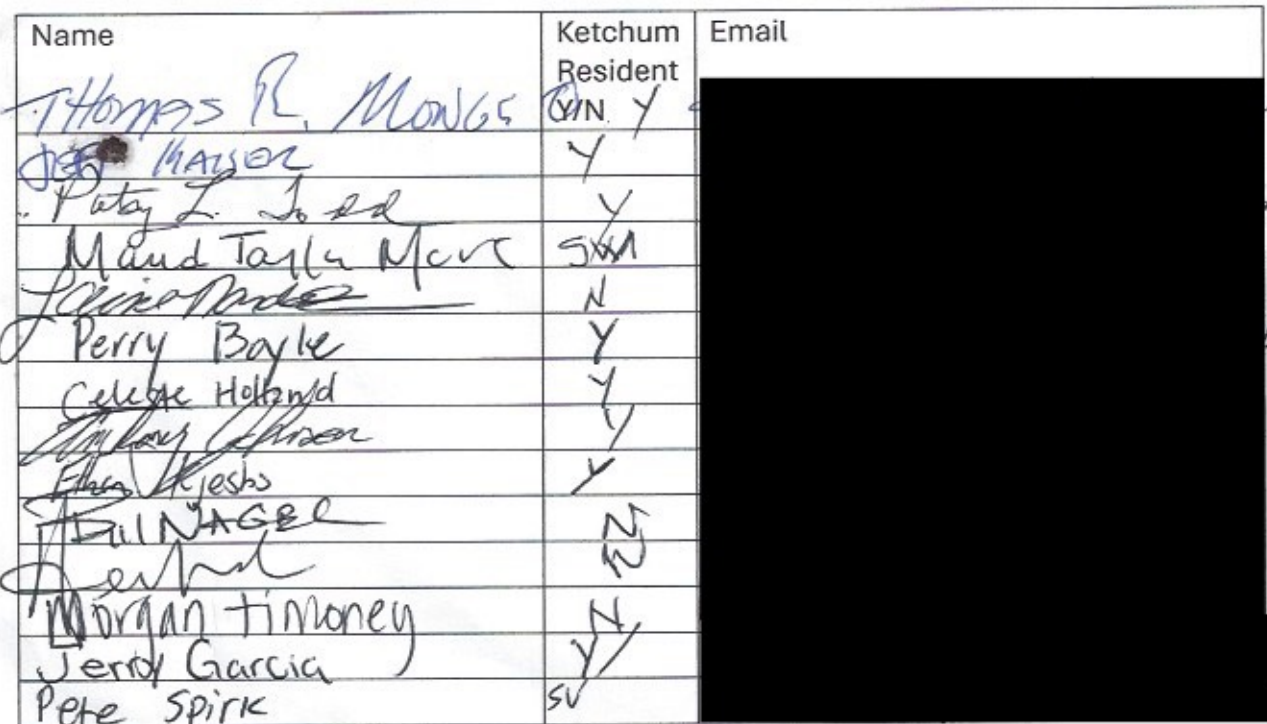 Name Ketchum Resident Y/N Email
THOMAS R. MONGE Y
JEFF KAISER Y
Patsy L. Todd Y
Maud Taylor
N
Perry Boyle Y
Celeste Holland Y
Anthony Johnson Y
Ethan Y
Bill NAGEL N
N
Morgan Timoney N
Jerry Garcia Y
Pete Spirk SV